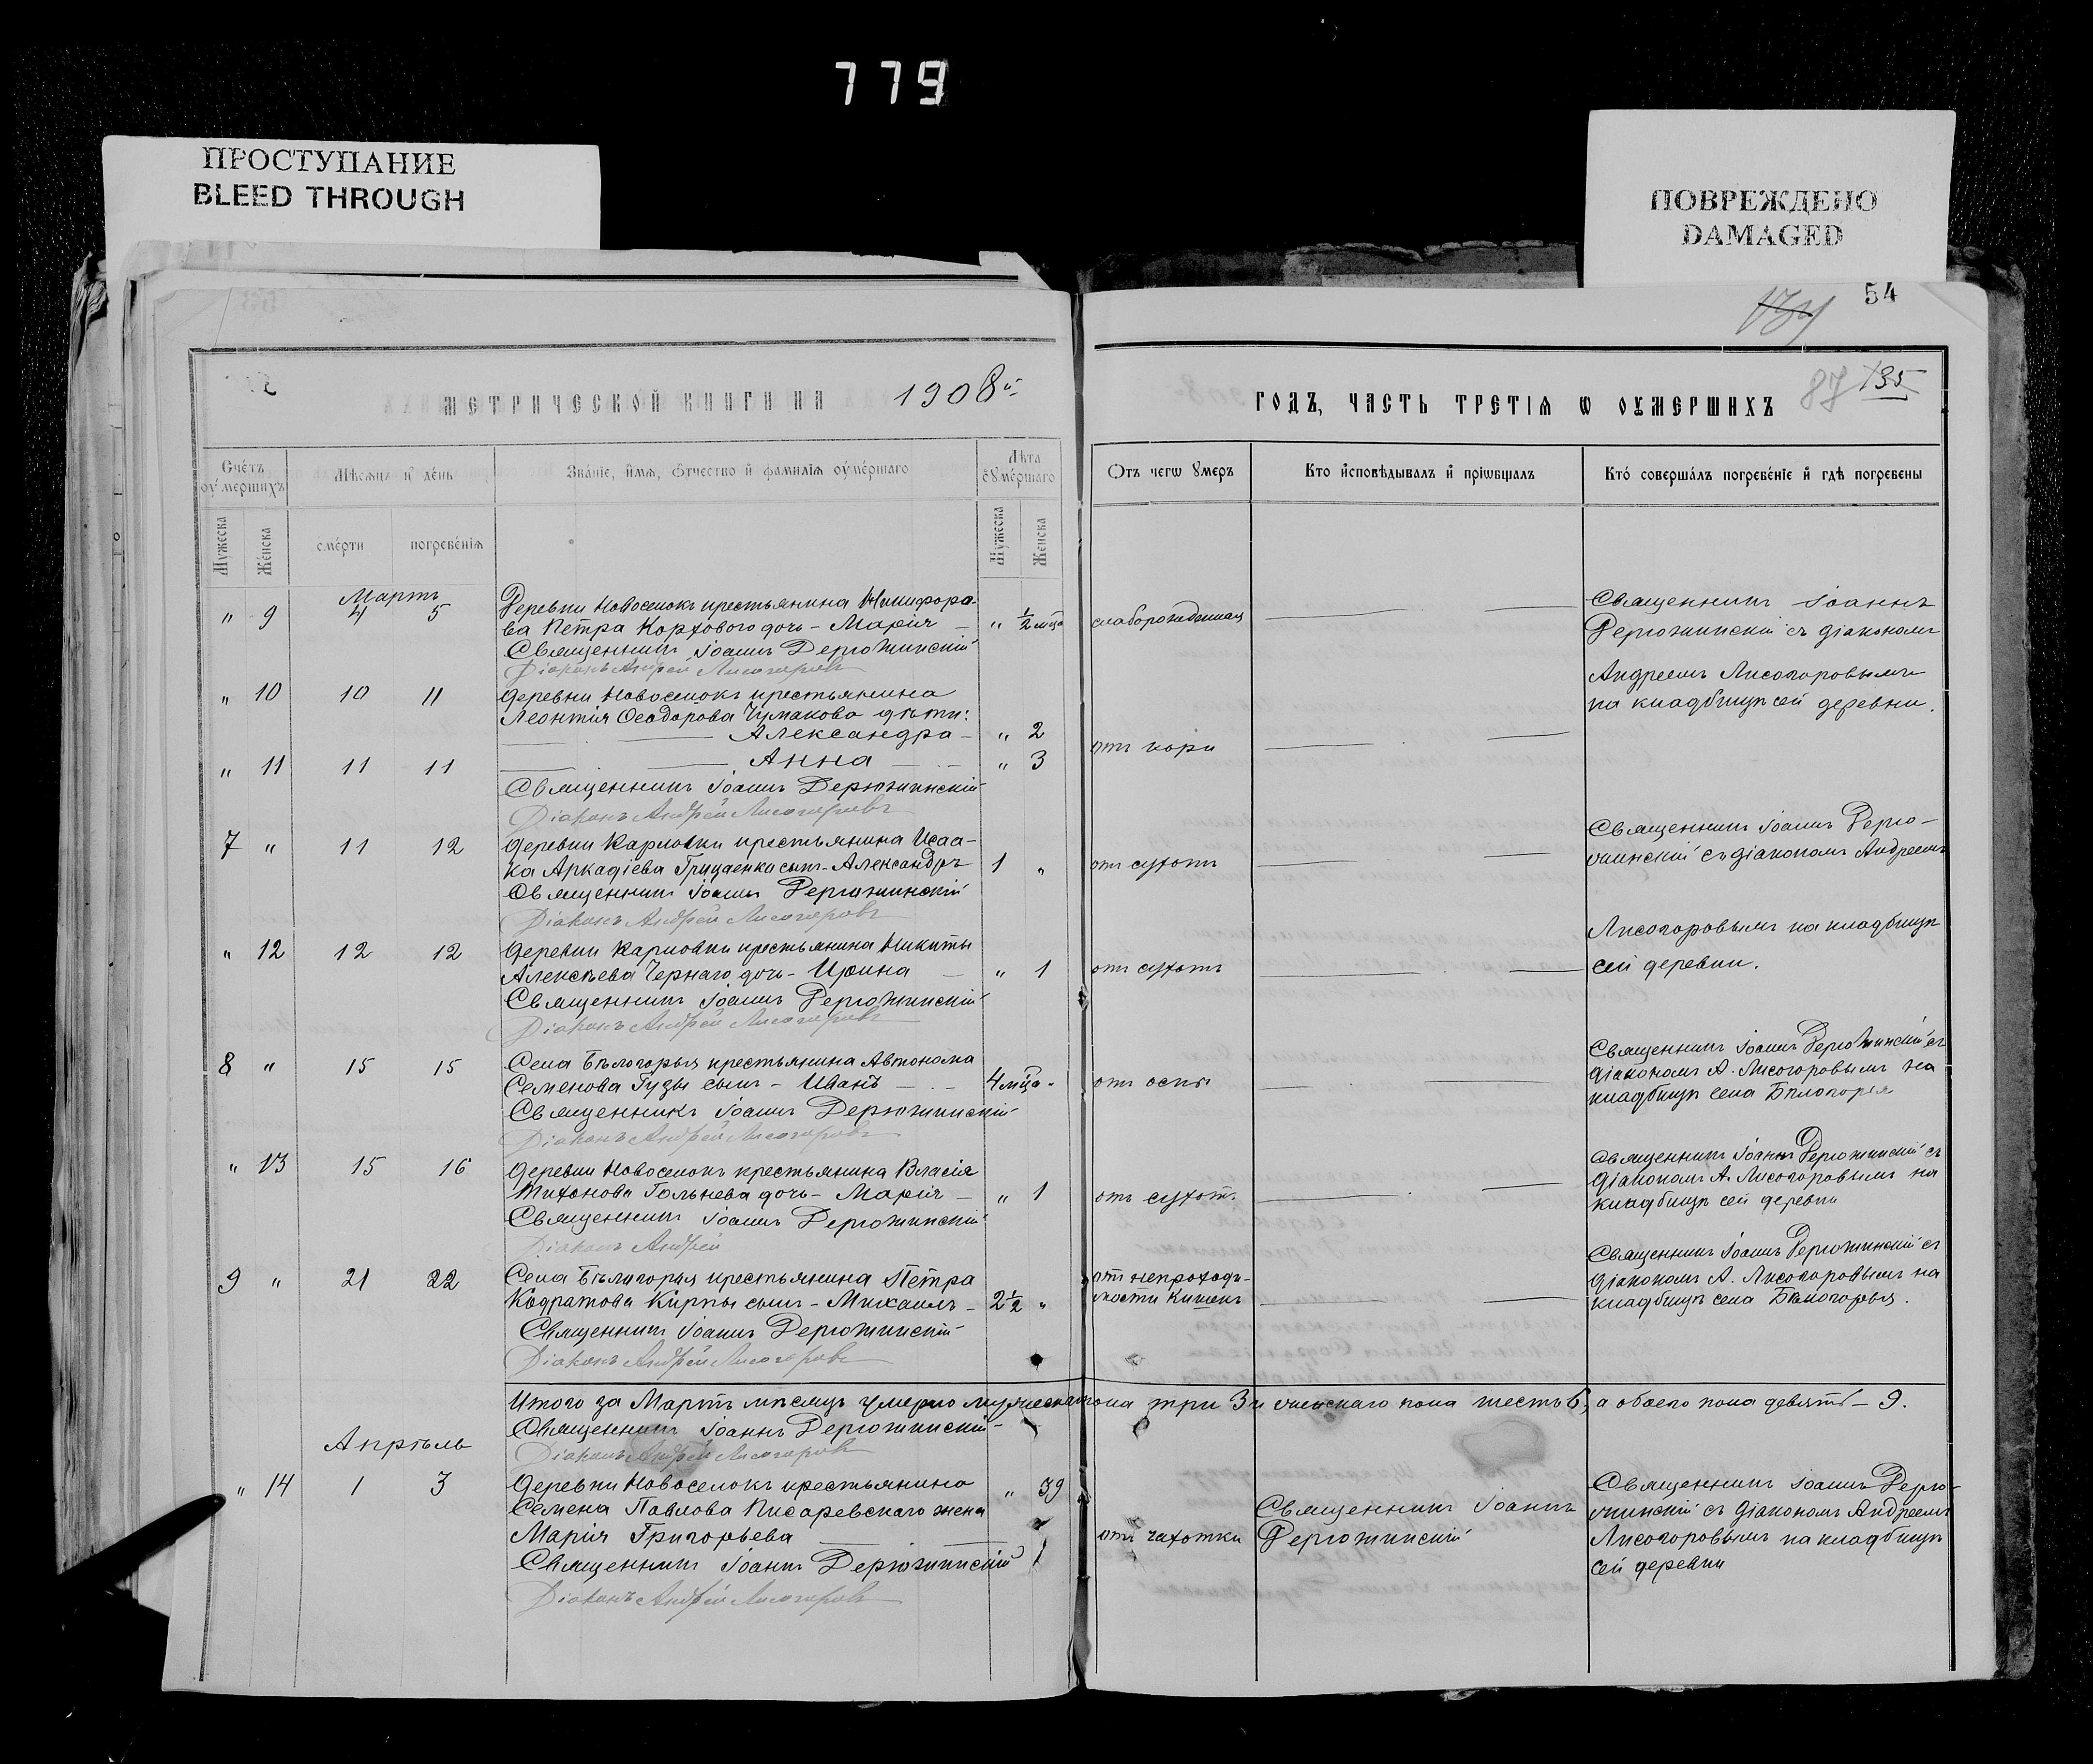 779
ПРОСТУПАНИЕ
BLEED THROUGH
ПОВРЕЖДЕНО
DAMAGED
54
87 135
МЕТРИЧЕСКОЙ КНИГИ НА 1908й
ГОДЪ, ЧАСТЬ ТРЕТІЯ Ѡ ОУМЕРШИХЪ
Счётъ оумершихъ
Мѣсяцъ и день
Званіе, имя, ѻтчество и фамилія оумершаго
Лѣта оумершаго
Отъ чегѡ умеръ
Кто исповѣдывалъ и пріѡбщалъ
Кто совершалъ погребеніе и гдѣ погребены
Мужеска
Женска
смерти
погребенія
Мужеска
Женска
Мартъ
" 9 4 5 Деревни Новоселокъ крестьянина Никифора-
ва Петра Коржового дочь - Марія " 1/2 мца слаборожденная
Священникъ Іоаннъ Дерюжинскій
Діаконъ Андрей Лисогоровъ
Священникъ Іоаннъ
Дерюжинскій съ діакономъ
Андреемъ Лисогоровымъ
на кладбищѣ сей деревни.
" 10 10 11 деревни Новоселокъ крестьянина
Леонтія Ѳеодорова Чумакова дѣти:
Александра " 2
отъ кори
" 11 11 11 Анна " 3
Священникъ Іоаннъ Дерюжинскій
Діаконъ Андрей Лисогоровъ
7 " 11 12 деревни Карловки крестьянина Исаа-
ка Аркадіева Грицаенка сынъ - Александръ 1 " отъ сухотъ
Священникъ Іоаннъ Дерюжинскій
Діаконъ Андрей Лисогоровъ
Священникъ Іоаннъ Дерю-
жинскій съ діакономъ Андреемъ
Лисогоровымъ на кладбищѣ
сей деревни.
" 12 12 12 деревни Карловки крестьянина Никиты
Алексѣева Чернаго дочь - Ирина " 1 отъ сухотъ
Священникъ Іоаннъ Дерюжинскій
Діаконъ Андрей Лисогоровъ
8 " 15 15 Села Бѣлогорья крестьянина Автонома
Семенова Гузы сынъ - Иванъ 4 мца " отъ оспы
Священникъ Іоаннъ Дерюжинскій
Діаконъ Андрей Лисогоровъ
Священникъ Іоаннъ Дерюжинскій съ
діакономъ А. Лисогоровымъ на
кладбищѣ села Бѣлогорья
" 13 15 16 деревни Новоселокъ крестьянина Власія
Тихонова Гольнева дочь - Марія " 1 отъ сухотъ
Священникъ Іоаннъ Дерюжинскій
Діаконъ Андрей
Священникъ Іоаннъ Дерюжинскій съ
діакономъ А. Лисогоровымъ на
кладбищѣ сей деревни
9 " 21 22 Села Бѣлогорья крестьянина Петра
Кодратова Кирпы сынъ - Михаилъ 2 1/2 "
отъ непроходи-
мости кишекъ
Священникъ Іоаннъ Дерюжинскій
Діаконъ Андрей Лисогоровъ
Священникъ Іоаннъ Дерюжинскій съ
діакономъ А. Лисогоровымъ на
кладбищѣ села Бѣлогорья.
Итого за Мартъ мѣсяцъ умерло мужескаго пола три 3 и женскаго пола шесть 6, а обоего пола девять - 9.
Священникъ Іоаннъ Дерюжинскій
Діаконъ Андрей Лисогоровъ
Апрѣль
" 14 1 3 Деревни Новоселокъ крестьянина " 39
Семена Павлова Писаревскаго жена
Марія Григорьева
Священникъ Іоаннъ Дерюжинскій
Діаконъ Андрей Лисогоровъ
отъ чахотки
Священникъ Іоаннъ
Дерюжинскій
Священникъ Іоаннъ Дерю-
жинскій съ діакономъ Андреемъ
Лисогоровымъ на кладбищѣ
сей деревни